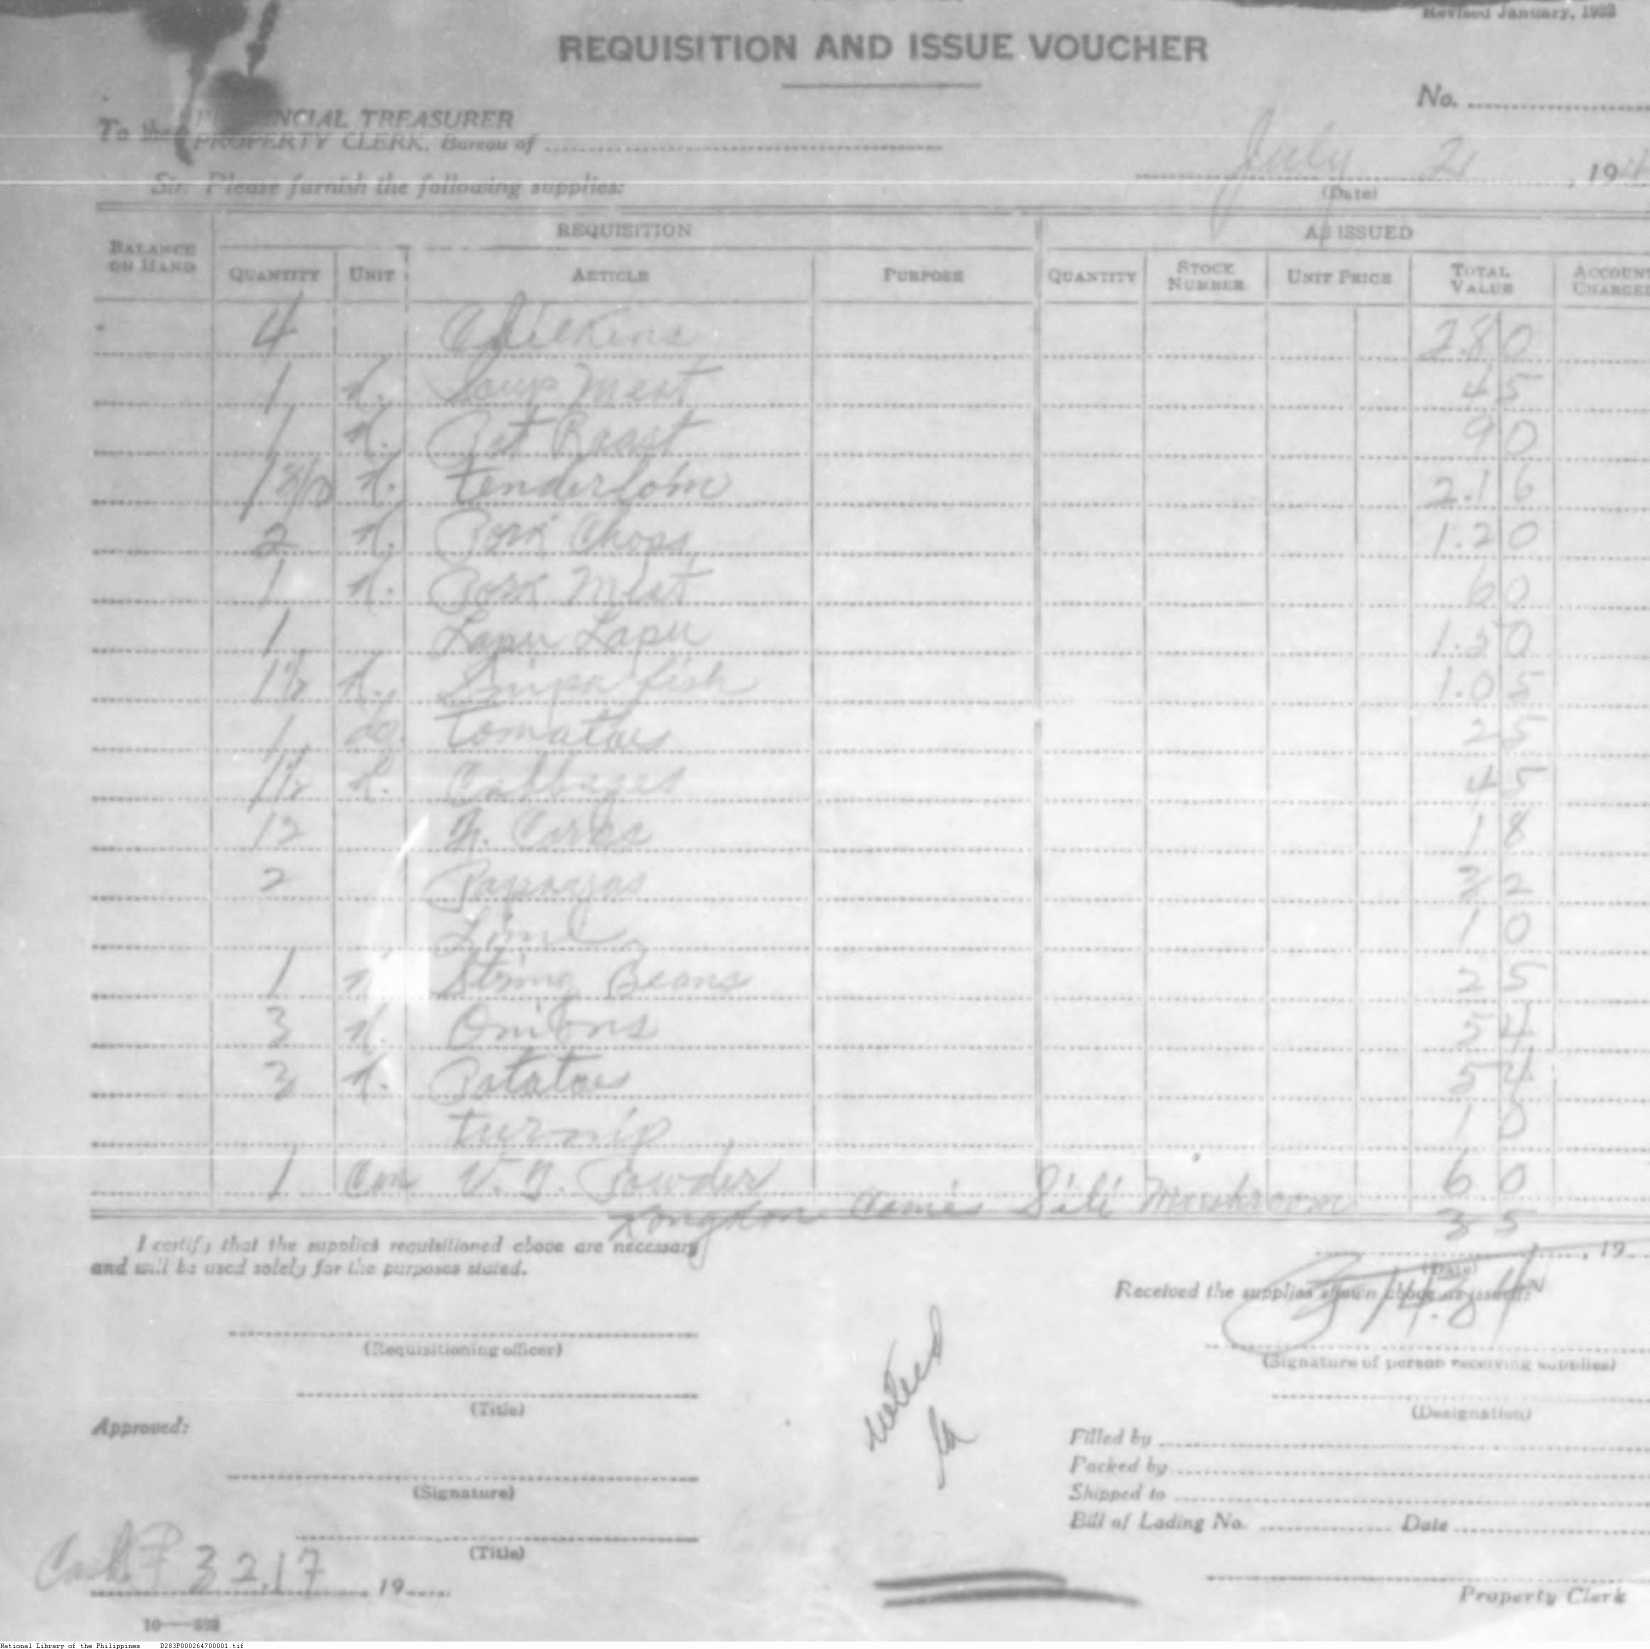 Revised January, 1922
REQUISITION AND ISSUE VOUCHER
No.
To the PROVINCIAL TREASURER
PROPERTY CLERK, Bureau of
July 21, 194
(Date)
Sir: Please furnish the following supplies:
BALANCE ON HAND REQUISITION AS ISSUED
QUANTITY UNIT ARTICLE PURPOSE QUANTITY STOCK NUMBER UNIT PRICE TOTAL VALUE ACCOUNT CHARGED
4 Chickens 2.80
1 k. Soup Meat 45
1 k. Pot Roast 90
k. Tenderloin 2.16
2 k. Pork Chops 1.20
1 k. Pork Meat 60
1 Lapu Lapu 1.50
1½ k. fish 1.05
1 Tomatoes 25
1½ k. Cabbages 45
12 18
2 Papayas 32
Lime 10
1 k. String Beans 25
3 k. Onions 54
3 k. Potatoes 54
turnip 10
1 Can Powder 60
Sili Mushroom 35
I certify that the supplies requisitioned above are necessary
and will be used solely for the purposes stated.
, 19
(Date)
Received the supplies shown above as issued:
14.84
(Requisitioning officer)
(Signature of person receiving supplies)
(Title)
(Designation)
Approved:
Filled by
Packed by
(Signature)
Shipped to
Bill of Lading No. Date
(Title)
Cash ₱ 32.17
, 19
Property Clerk
National Library of the Philippines D283P000264700001.tif